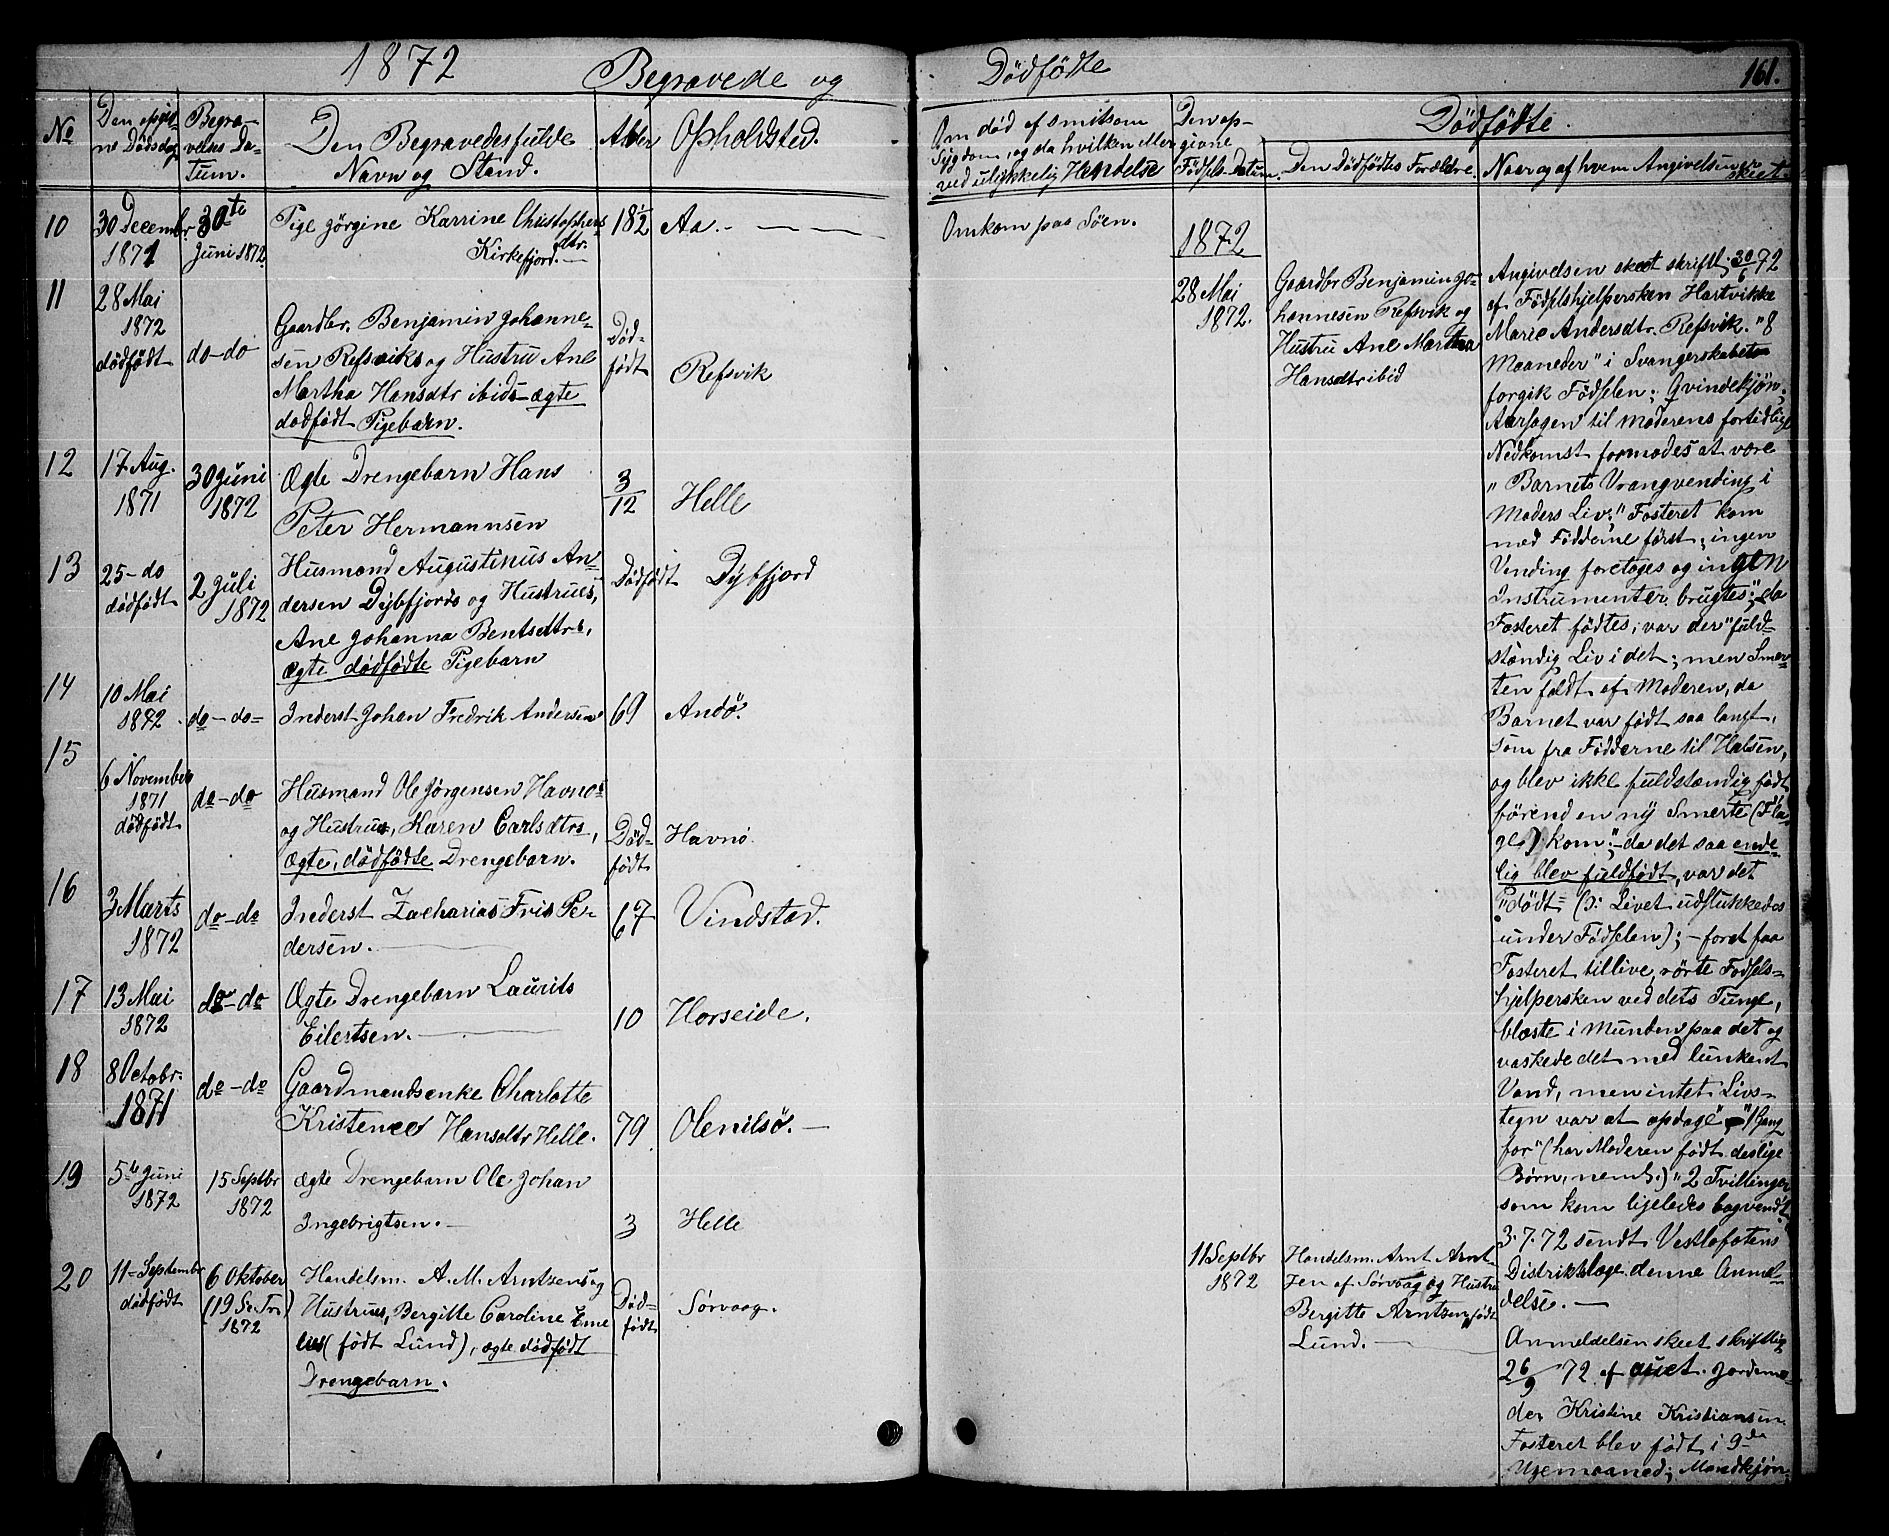 1872
Begravede og
Dödfödte
161.
No
Den opgiv-
ne Dödsdag
Begra-
velses Da-
tum.
Den Begravedes fulde
Navn og Stand.
Alder
Opholdsted.
Om död af smitsom
Sygdom, og da hvilken eller
ved ulykkelig Hendelse
Den op-
givne
Födsels-Datum.
Dödfödte.
Den Dödfödtes Forældre.
Naar og af hvem Angivelsen er
skeet.
10
30 Decembr.
1871
30te
Juni 1872.
Pige Jörgine Karrine Christophers
dtr.
Kirkefjord.—
18 1/2
Aa. - — — —
Omkom paa Söen.
11
28 Mai
1872
dödfödt
do-do
Gaardbr. Benjamin Johanne-
sen Refsviks og Hustru Ane
Martha Hansdtr ibids ægte
dødfødt Pigebarn.
Död-
födt
Refsvik
1872
28 Mai
1872.
Gaardbr Benjamin Jo-
hannesen Refsvik og
Hustru Ane Martha
Hansdtr ibid
Angivelsen skeet skriftl. 30/6 72
af Födselshjelpersken Hartvikke
Marie Andersdtr. Refsvik. "8
Maaneder" i Svangerskabet
forgik Födselen; Qvindekjön;
Aarsagen til Moderens fortidlige
Nedkomst formodes at være
"Barnets Vrangvending i
Moders Liv;" Fosteret kom
med Födderne först; ingen
Vending foretoges og ingen
Instrumenter brugtes; da
Fosteret födtes, var der "fuld-
stændig Liv i det; men Smer-
ten faldt af Moderen, da
Barnet var født saa langt,
som fra Födderne til Halsen,
og blev ikke fuldstændig födt
förend en ny Smerte (Pla-
ge) kom"; - da det saa ende-
lig blev fuldfödt, var det
"dödt" (ɔ: Livet udslukkedes
under Födselen); - for at faa
Fosteret tillive, rörte Födsels-
hjelpersken ved dets Tunge,
blæste i Munden paa det og
vaskede det med lunkent
Vand, men intet Livs-
tegn var at opdage" "1 Gang
för" (har Moderen födt deslige
Børn, neml.) "2 Tvillinger
som kom ligeledes bagvendt"
3.7.72 sendt Vestlofotens
Distriktslæge denne Anmel-
delse. —
12
17 Aug.
1871
30 Juni
1872
Ægte Drengebarn Hans
Peter Hermannsen
3/12
Helle
13
25 - do
dödfödt
2 Juli
1872
Husmand Augustinus An-
dersen Dybfjords og Hustrues,
Ane Johanna Bentsdtrs,
ægte dödfödte Pigebarn
Dödfödt
Dybfjord
14
10 Mai
1872
do-do-
Inderst Johan Fredrik Andersen
69
Andö.
15
6 November
1871
dödfödt
do-do
Husmand Ole Jörgensen Havnös
og Hustrus, Karen Carlsdtrs,
ægte, dödfödte Drengebarn.
Död-
födt
Havnö.
16
3 Marts
1872
do-do
Inderst Zacharias Friis Pe-
dersen. —
67
Vindstad.
17
13 Mai
1872
do-do
Ægte Drengebarn Laurits
Eilertsen. —
10
Horseide.
18
8 Octobr.
1871
do-do
Gaardmandsenke Charlotte
Kristence Hansdtr Helle.
79
Olenilsö. —
19
5te Juni
1872
15 Septbr
1872
ægte Drengebarn Ole Johan
Ingebrigtsen. —
3
Helle
20
11 - September
dödfödt
6 Oktober
(19 S. Tri)
1872
Handelsm. A. M. Arntzens og
Hustrues, Bergitte Caroline Eme
lies (födt Lund), ægte dödfödt
Drengebarn.
Död-
födt
Sörvaag.
11 Septbr
1872
Handelsm. Arnt Arnt-
zen af Sörvaag og Hustru
Bergitte Arntzen, födt
Lund. —
Anmeldelsen skeet skriftlig
26/9 72 af Jordemo-
der Kristine Kristiansen.
Fosteret blev födt i 9de
Ugemaaned; Mandkjøn